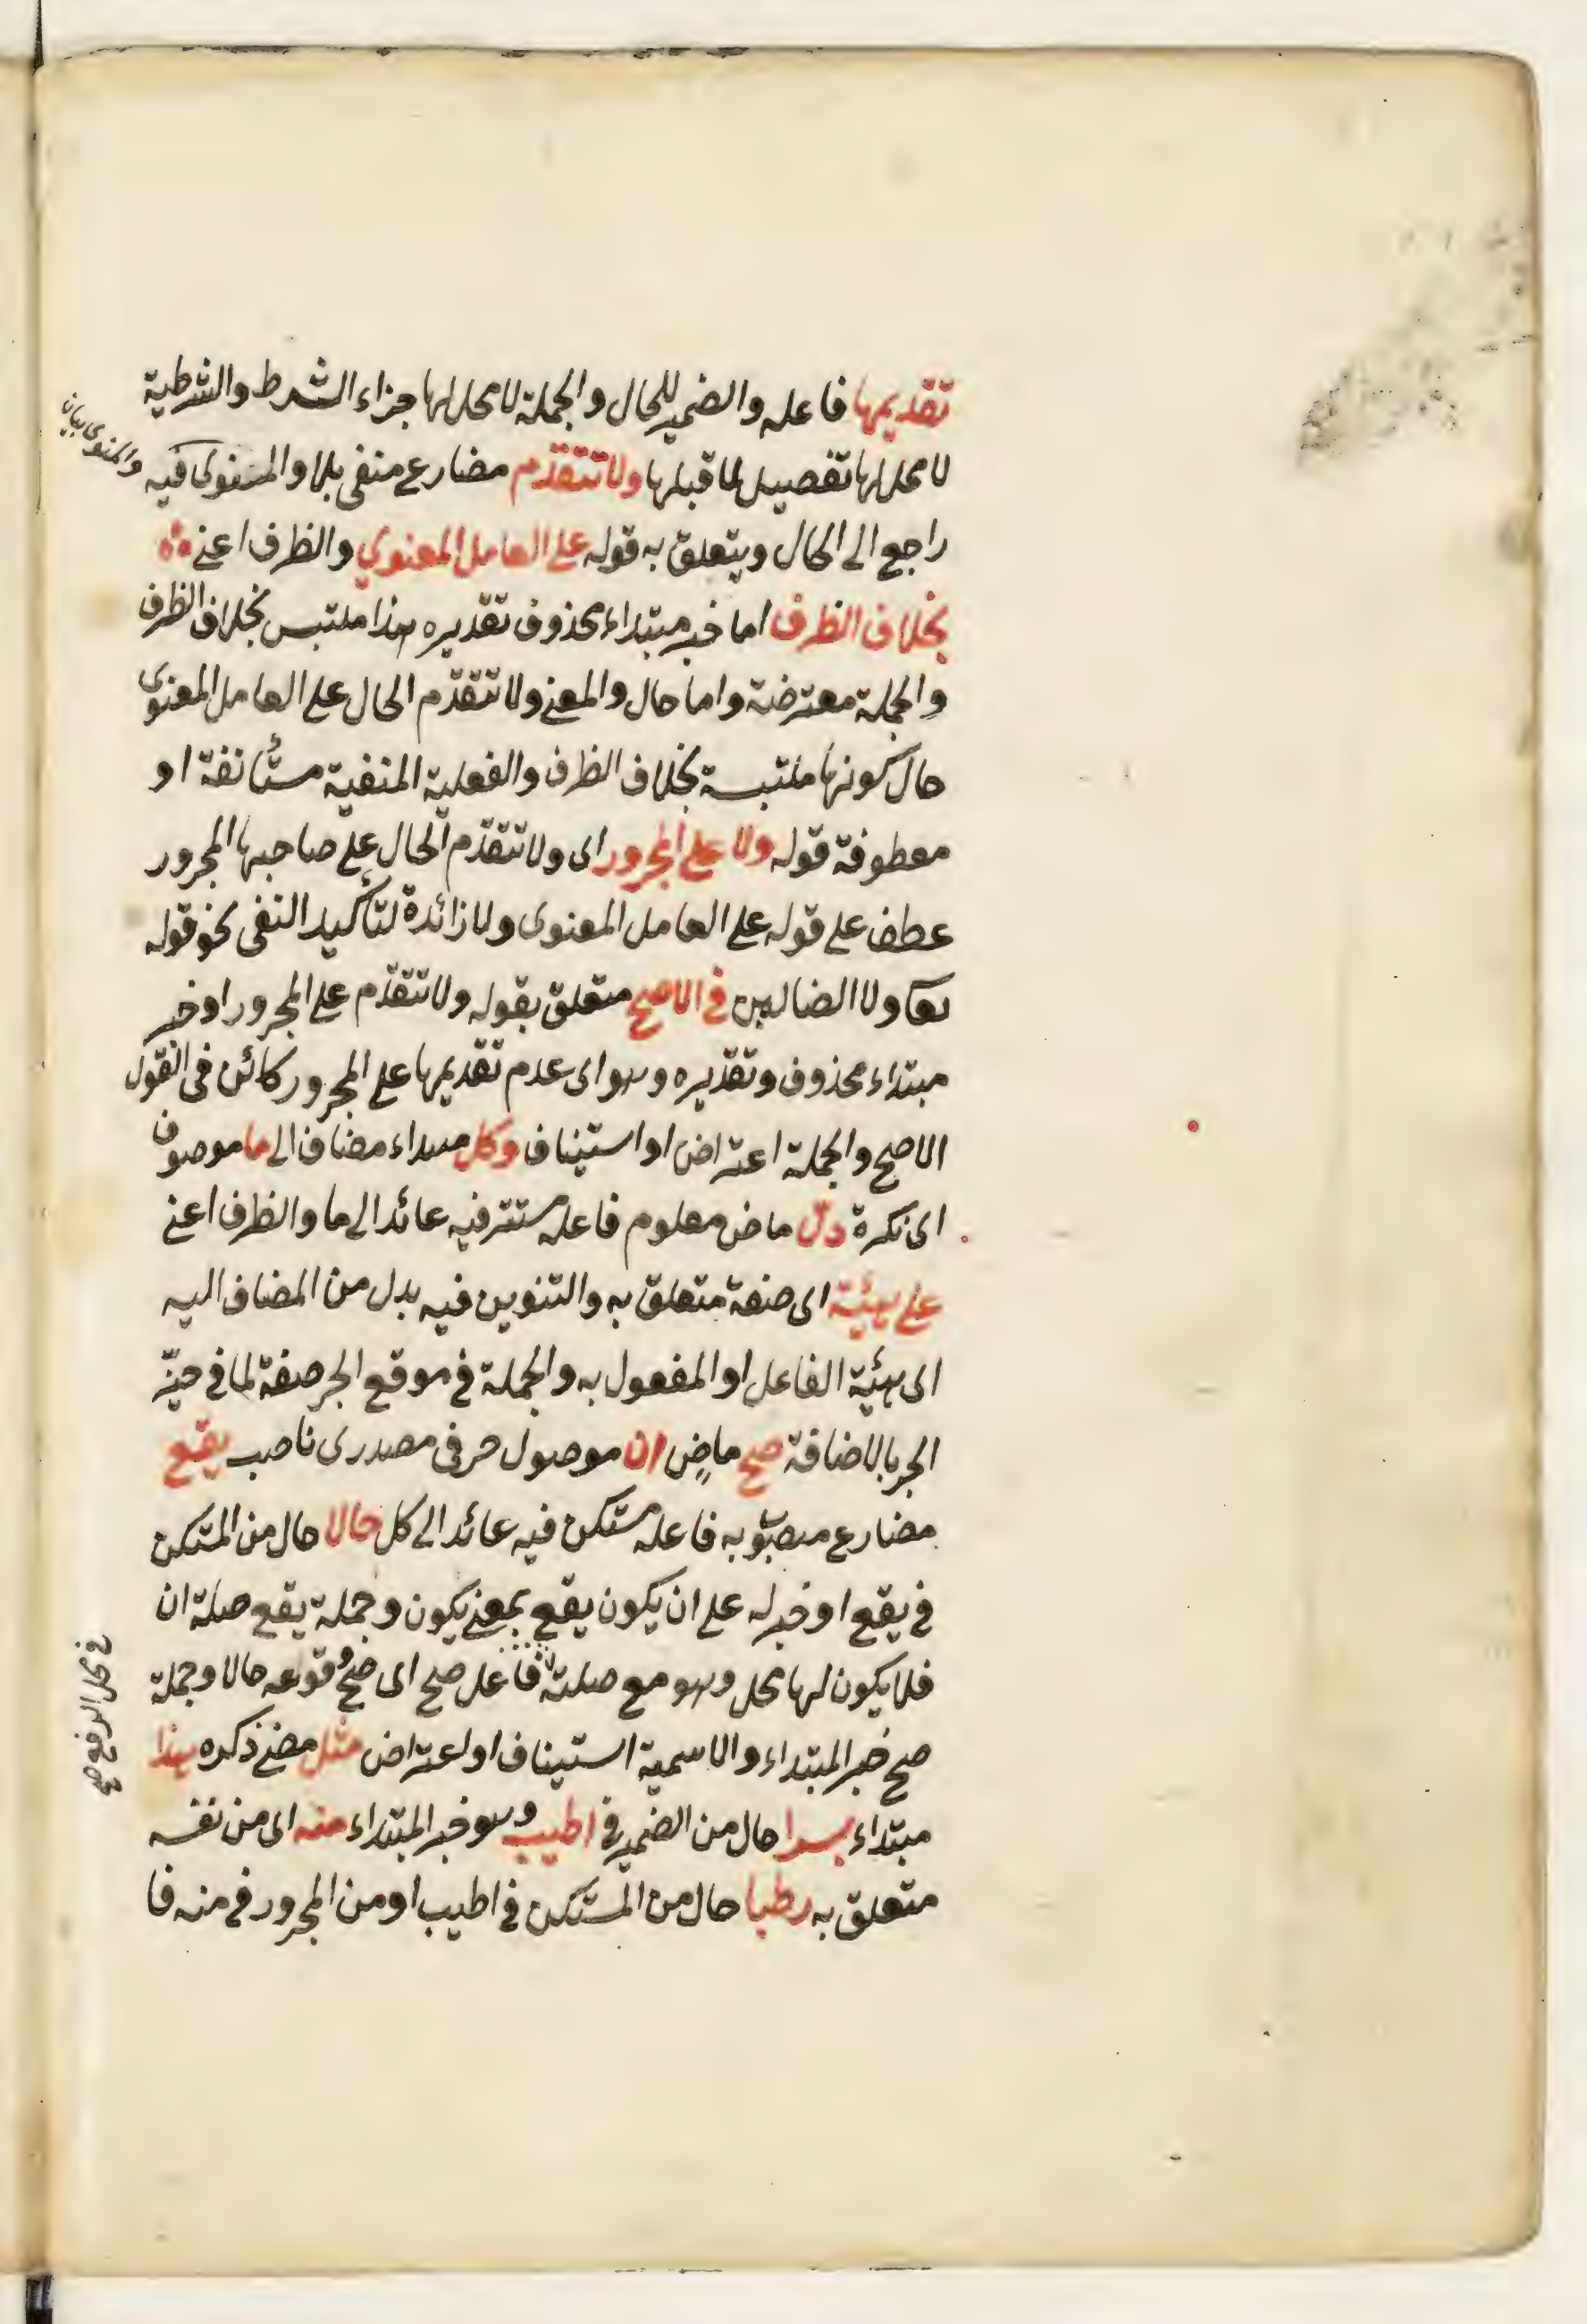 تقديمها فاعله والضمير للحال والجملة لا محل لها جزاء الشرط والشرطية
لا محل لها تفصيل لما قبلها ولا تتقدّم مضارع منفى بلا والمنوى فيه
والمنوى بيان
راجع الى الحال ويتعلق به قوله على العامل المعنوي والظرف اعنے
بخلاف الظرف اما خبر مبتداء محذوف تقديره هذا ملتبس بخلاف الظرف
والجملة معترضة واما حال والمعنے ولا تتقدّم الحال على العامل المعنوى
حال كونها ملتبسة بخلاف الظرف والفعلية المنفية مستأنفة او
معطوفة قوله ولا على المجرور اى ولا تتقدّم الحال على صاحبها المجرور
عطف على قوله على العامل المعنوى ولا زائدة لتأكيد النفى نحو قوله
تعا ولا الضالين فے الاصح متعلق بقوله ولا تتقدّم على المجرور او خبر
مبتداء محذوف وتقديره وهو اى عدم تقديمها على المجرور كائن فى القول
الاصح والجملة اعتراض او استيناف وكل مبتداء مضاف الى ما موصوف
اى نكرة دلّ ماض معلوم فاعله مستتر فيه عائد الى ما والظرف اعنے
على هيئة اى صفة متعلق به والتنوين فيه بدل من المضاف اليه
اى هيئة الفاعل او المفعول به والجملة فے موقع الجر صفة لما فى حيّز
الجر بالاضافة صح ماضٍ ان موصول حرفى مصدرى ناصب يقع
مضارع منصوب به فاعله مستكن فيه عائد الى كل حالا حال من المستكن
فے يقع او خبر له على ان يكون يقع بمعنے يكون وجملة يقع صلة ان
فلا يكون لها محل وهو مع صلته فاعل صح اى صح وقوعه حالا وجملة
فے محل الرفع صح
صح خبر المبتداء والاسمية استيناف او اعتراض مثل مضے ذكره هذا
مبتداء بسرا حال من الضمير فے اطيب وهو خبر المبتداء منه اى من نفسه
متعلق به رطبا حال من المستكن فے اطيب او من المجرور فے منه فا